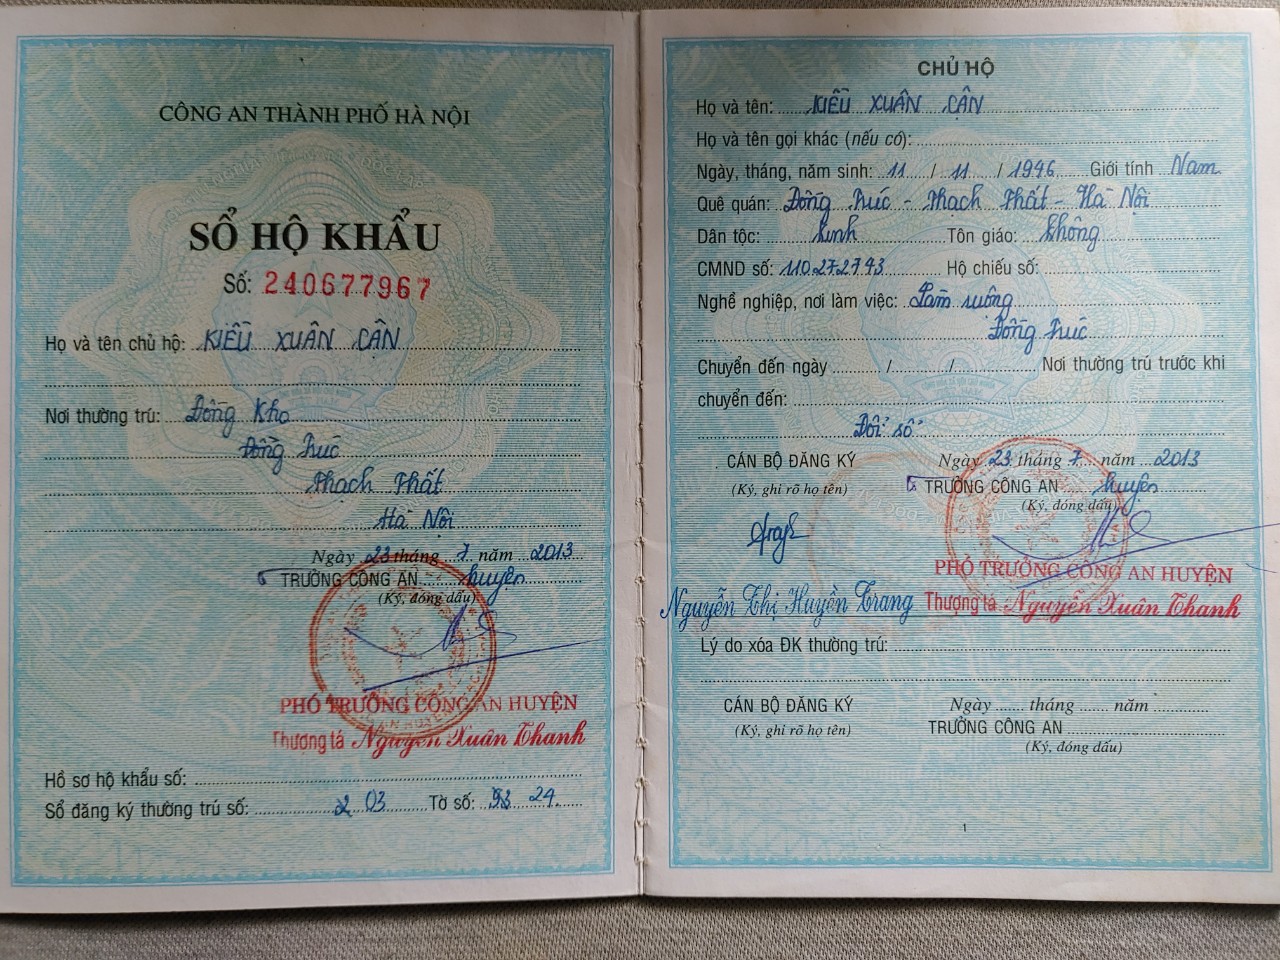 CÔNG AN THÀNH PHỐ HÀ NỘI
SỔ HỘ KHẨU
Số: 240677967
Họ và tên chủ hộ: KIỀU XUÂN CẬN
Nơi thường trú: Đồng Kho
Đồng Trúc
Thạch Thất
Hà Nội
Ngày 23 tháng 7 năm 2013
TRƯỞNG CÔNG AN huyện
(Ký, đóng dấu)
PHÓ TRƯỞNG CÔNG AN HUYỆN
Thượng tá Nguyễn Xuân Thanh
Hồ sơ hộ khẩu số:
Sổ đăng ký thường trú số: 03 Tờ số: 24
CHỦ HỘ
Họ và tên: KIỀU XUÂN CẬN
Họ và tên gọi khác (nếu có):
Ngày, tháng, năm sinh: 11 / 11 / 1946 Giới tính Nam
Quê quán: Đồng Trúc - Thạch Thất - Hà Nội
Dân tộc: kinh Tôn giáo: không
CMND số: 110272743 Hộ chiếu số:
Nghề nghiệp, nơi làm việc: Làm ruộng
Đồng Trúc
Chuyển đến ngày / / Nơi thường trú trước khi
chuyển đến:
Đổi sổ
CÁN BỘ ĐĂNG KÝ Ngày 23 tháng 7 năm 2013
(Ký, ghi rõ họ tên) TRƯỞNG CÔNG AN huyện
(Ký, đóng dấu)
PHÓ TRƯỞNG CÔNG AN HUYỆN
Nguyễn Thị Huyền Trang Thượng tá Nguyễn Xuân Thanh
Lý do xóa ĐK thường trú:
CÁN BỘ ĐĂNG KÝ Ngày tháng năm
(Ký, ghi rõ họ tên) TRƯỞNG CÔNG AN
(Ký, đóng dấu)
1